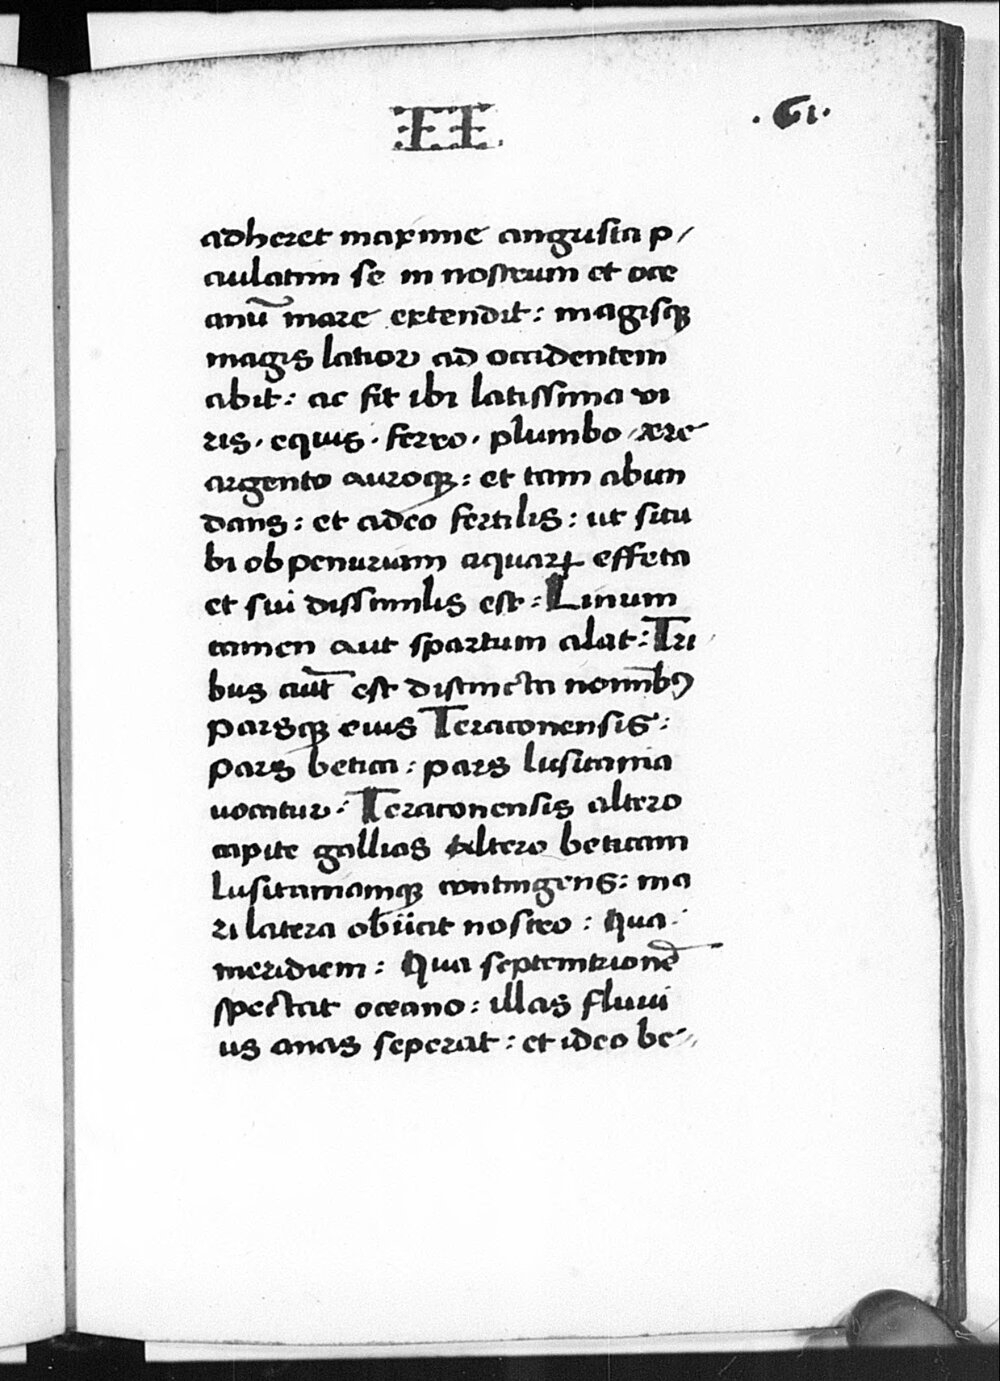 II
.61.
adheret maxime angusta p/
aulatim se in nostrum et oce
anū mare extendit: magisqꝫ
magis latior ad occidentem
abit: ac fit ibi latissima vi
ris. equis. ferro. plumbo ære
argento auroqꝫ: et tam abun
dans: et adeo fertilis: ut sicu
bi ob penuriam aquarꝝ effeta
et sui dissimilis est: Linum
tamen aut spartum alat: Tri
bus aūt est distincta nominibꝰ
parsqꝫ eius Teraconensis:
pars betica: pars lusitania
uocatur: Teraconensis altero
capite gallias altero beticam
lusitaniamqꝫ contingens: ma
ri latera obiicit nostro: Qua
meridiem: Qua septemtrionē
spectat oceano: illas fluui
us anas seperat: et ideo be